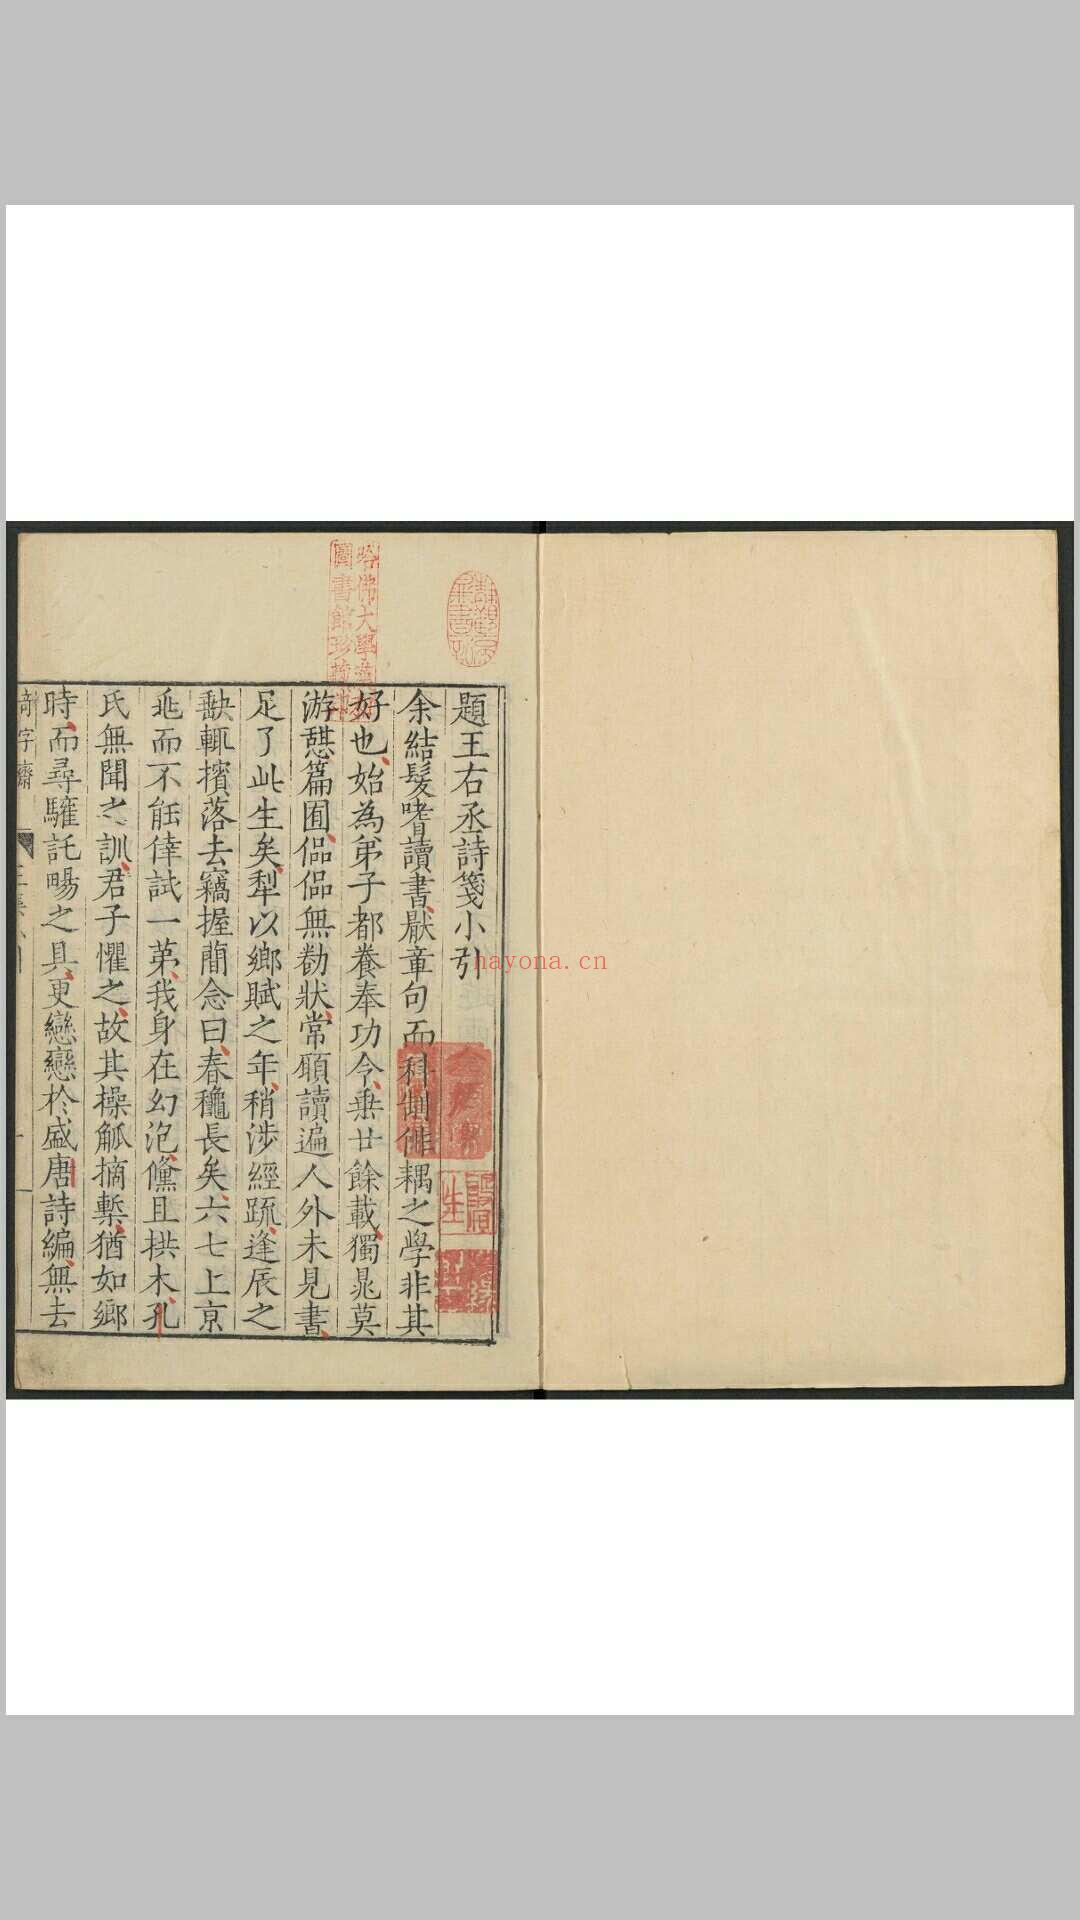 題王右丞詩箋小引
余結髮嗜讀書厭章句而科制俳耦之學非其
好也始為弟子都養奉功令垂廿餘載獨晁莫
游憇篇囿偘偘無勌狀常願讀遍人外未見書
足了此生矣犁以鄉賦之年稍涉經疏逢辰之
缺輒擯落去竊握蕳念曰春龝長矣六七上京
兆而不能倖試一苐我身在幻泡儻且拱木孔
氏無聞之訓君子懼之故其操觚摘槧猶如鄉
時而尋騹託暘之具更戀戀於盛唐詩編無去
奇字齋
哈佛大學
圖書館珍藏
hayona.cn